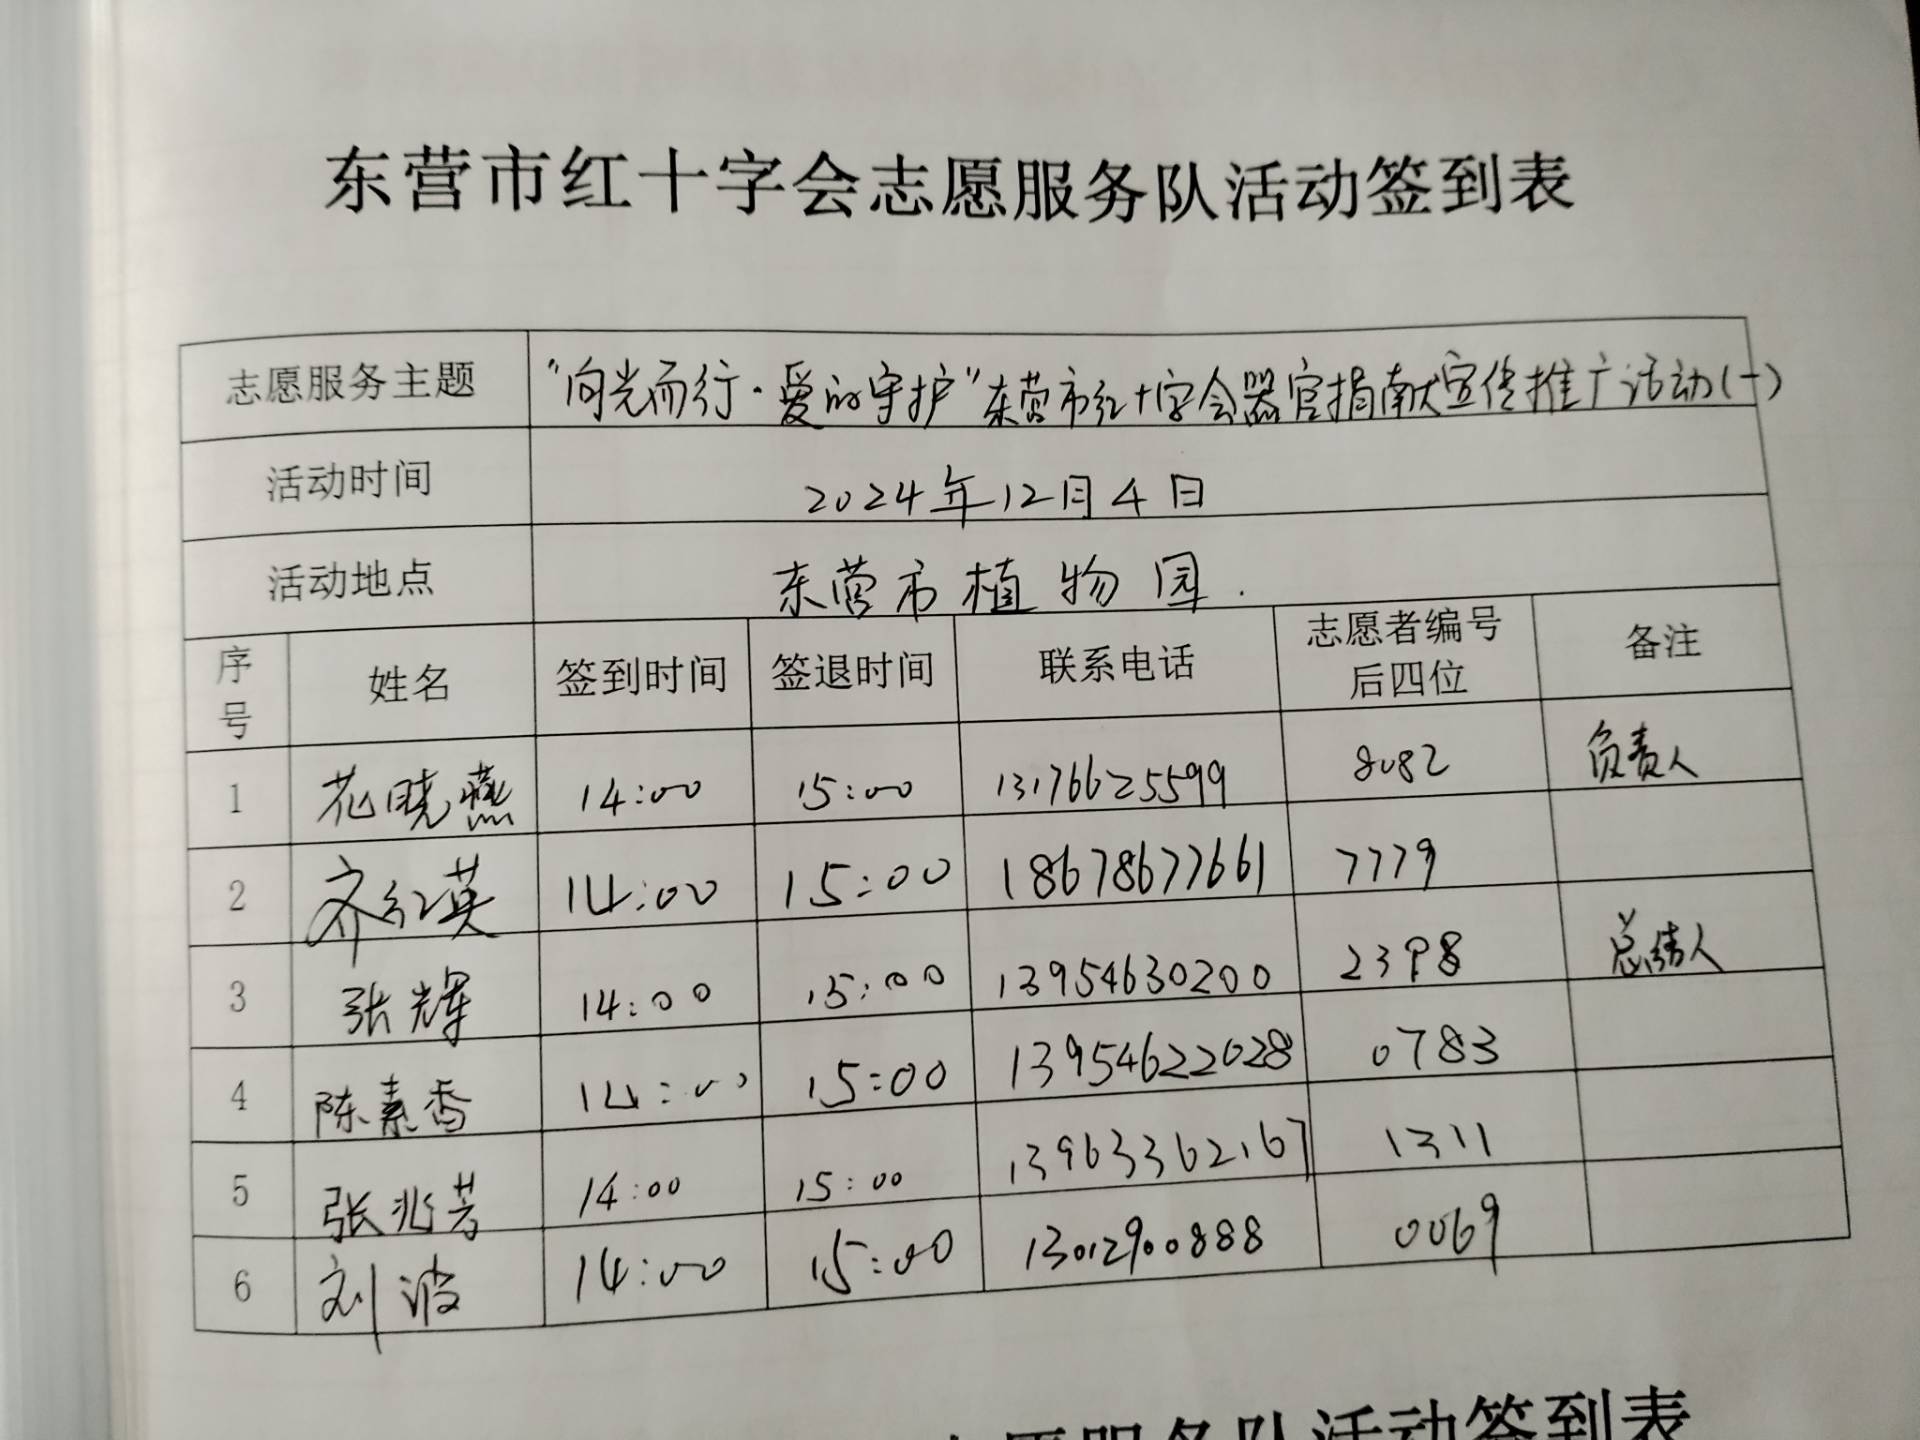 东营市红十字会志愿服务队活动签到表
志愿服务主题 "向光而行·爱的守护"东营市红十字会器官捐献宣传推广活动(一)
活动时间 2024年12月4日
活动地点 东营市植物园.
序号 姓名 签到时间 签退时间 联系电话 志愿者编号后四位 备注
1 花晓燕 14:00 15:00 13176625599 8082 负责人
2 齐红英 14:00 15:00 18678677661 7779
3 张辉 14:00 15:00 13954630200 2398 总结人
4 陈素香 14:00 15:00 13954622028 0783
5 张兆芳 14:00 15:00 13963362167 1311
6 刘波 14:00 15:00 13012900888 0069
志愿服务队活动签到表